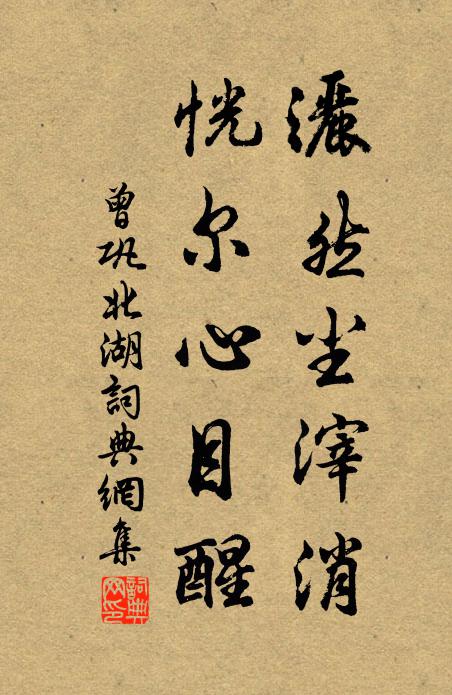 灑然尘滓消
恍尔心目醒
曾巩北湖詞典網集
詞典網印